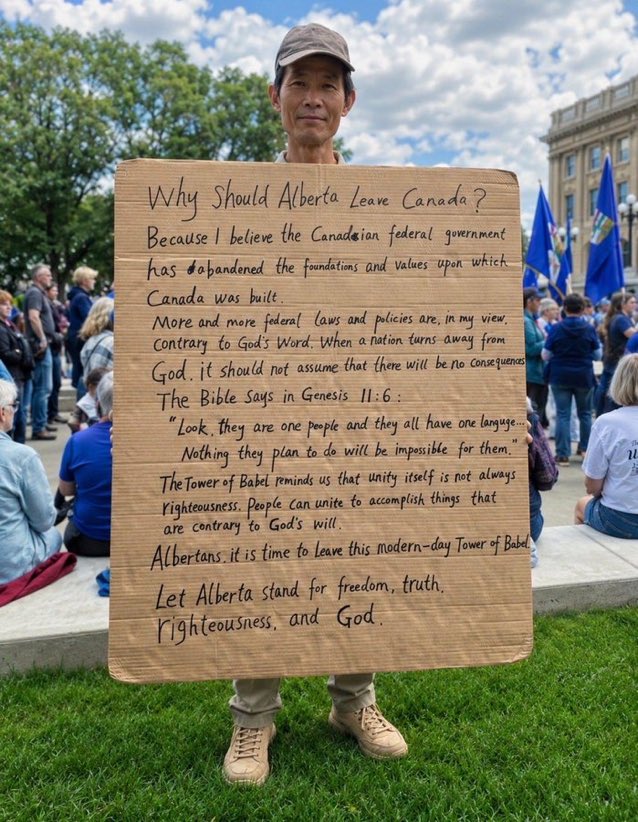 Why Should Alberta Leave Canada?
Because I believe the Canadian federal government
has abandened the foundations and values upon which
Canada was built.
More and more federal laws and policies are, in my view,
contrary to God's Word. When a nation turns away from
God, it should not assume that there will be no consequences
The Bible Says in Genesis 11:6:
"Look, they are one people and they all have one languge...
Nothing they plan to do will be impossible for them."
The Tower of Babel reminds us that unity itself is not always
righteousness. People can unite to accomplish things that
are contrary to God's will.
Albertans, it is time to leave this modern-day Tower of Babel.
Let Alberta stand for freedom, truth,
righteousness, and God.